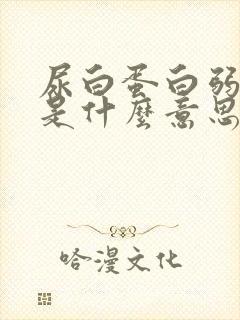 尿白蛋白弱
是什麼意思
哈漫文化